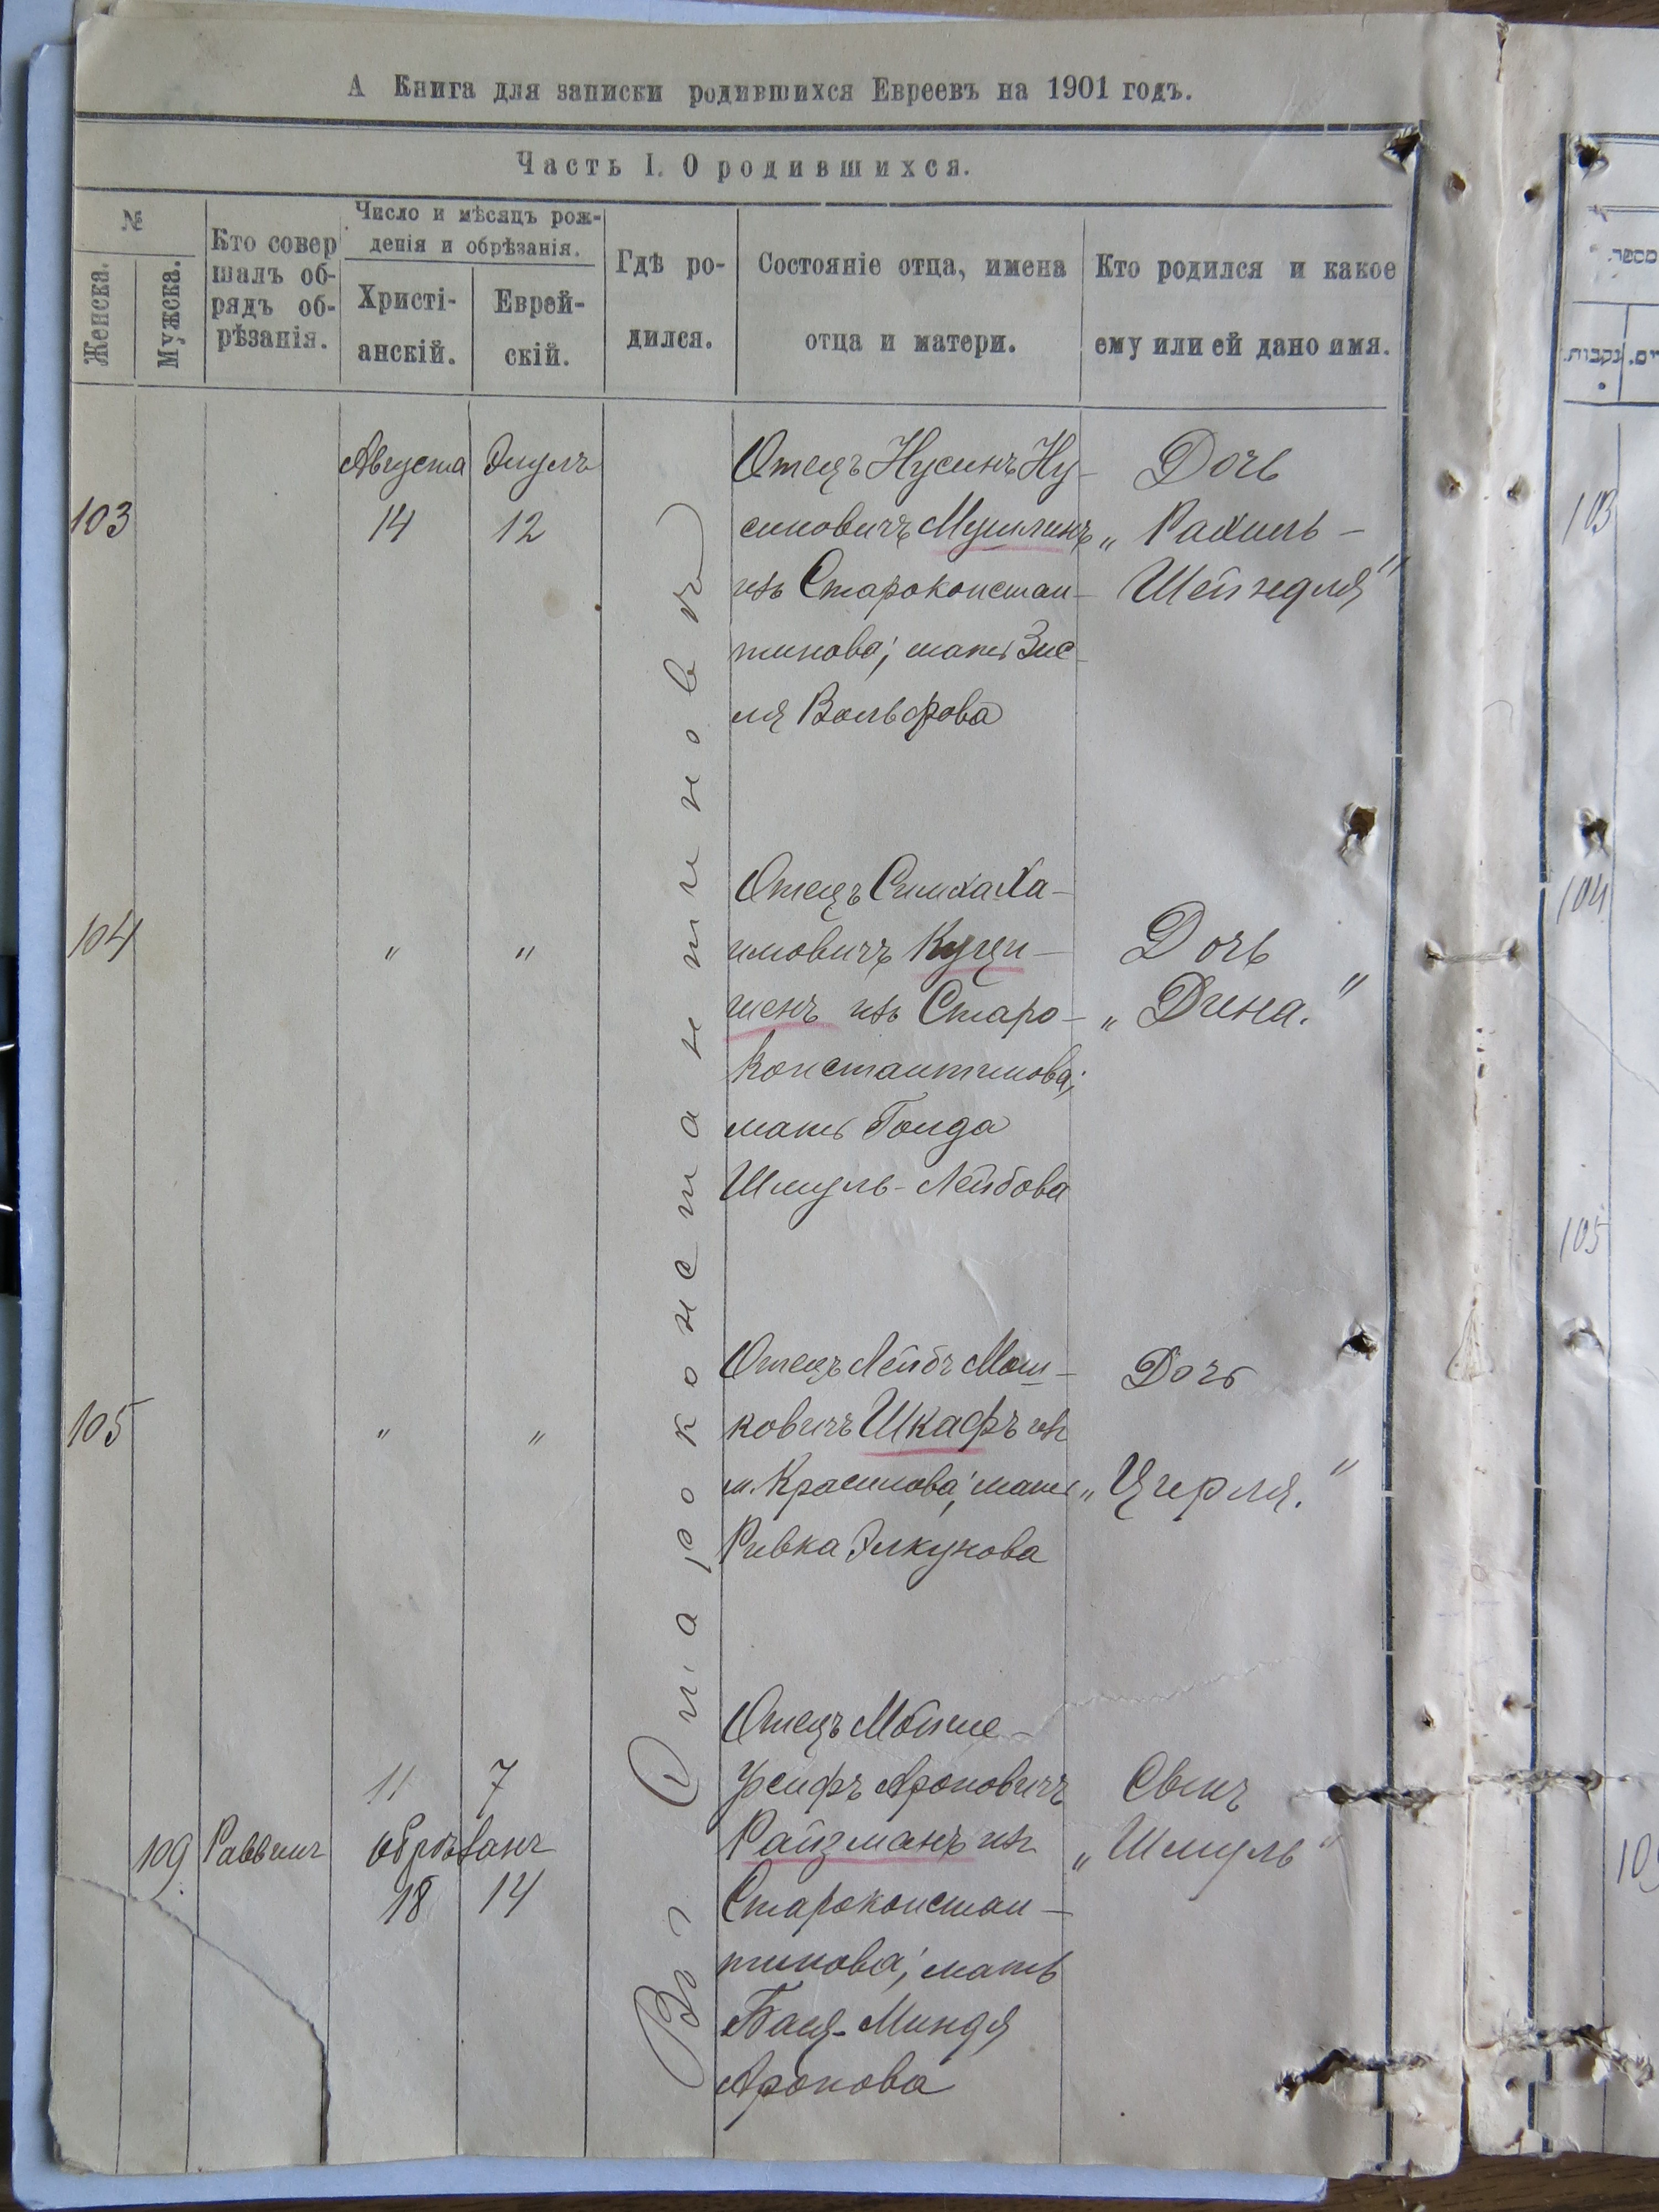 А Книга для записки родившихся Евреевъ на 1901 годъ.
Часть I. О родившихся.
№
Женска.
Мужска.
Кто совер
шалъ об-
рядъ об-
рѣзанія.
Число и мѣсяцъ рож-
денія и обрѣзанія.
Христі-
анскій.
Еврей-
скій.
Гдѣ ро-
дился.
Состояніе отца, имена
отца и матери.
Кто родился и какое
ему или ей дано имя.
מספר.
נקבות.
Въ Староконстантиновѣ
103
Августа Элулъ
14 12
Отецъ Нусинъ Ну-
синовичъ Мушлинъ
изъ Староконстан-
тинова; мать Зис-
ля Вольфова
Дочь
„Рахиль-
Шейндля"
103
104
" "
Отецъ Симха Ха-
имовичъ Куци-
менъ изъ Старо-
константинова;
мать Голда
Шмуль-Лейбова
Дочь
„Дина."
104
105
" "
Отецъ Лейбъ Мош-
ковичъ Шкафъ изъ
м. Красилова; мать
Ривка Элкунова
Дочь
„Цирля."
105
109 Раввинъ
11 7
обрѣзанъ
18 14
Отецъ Мойше-
Іосифъ Ароновичъ
Райзманъ изъ
Староконстан-
тинова; мать
Бася-Миндя
Аронова
Сынъ
„Шмуль"